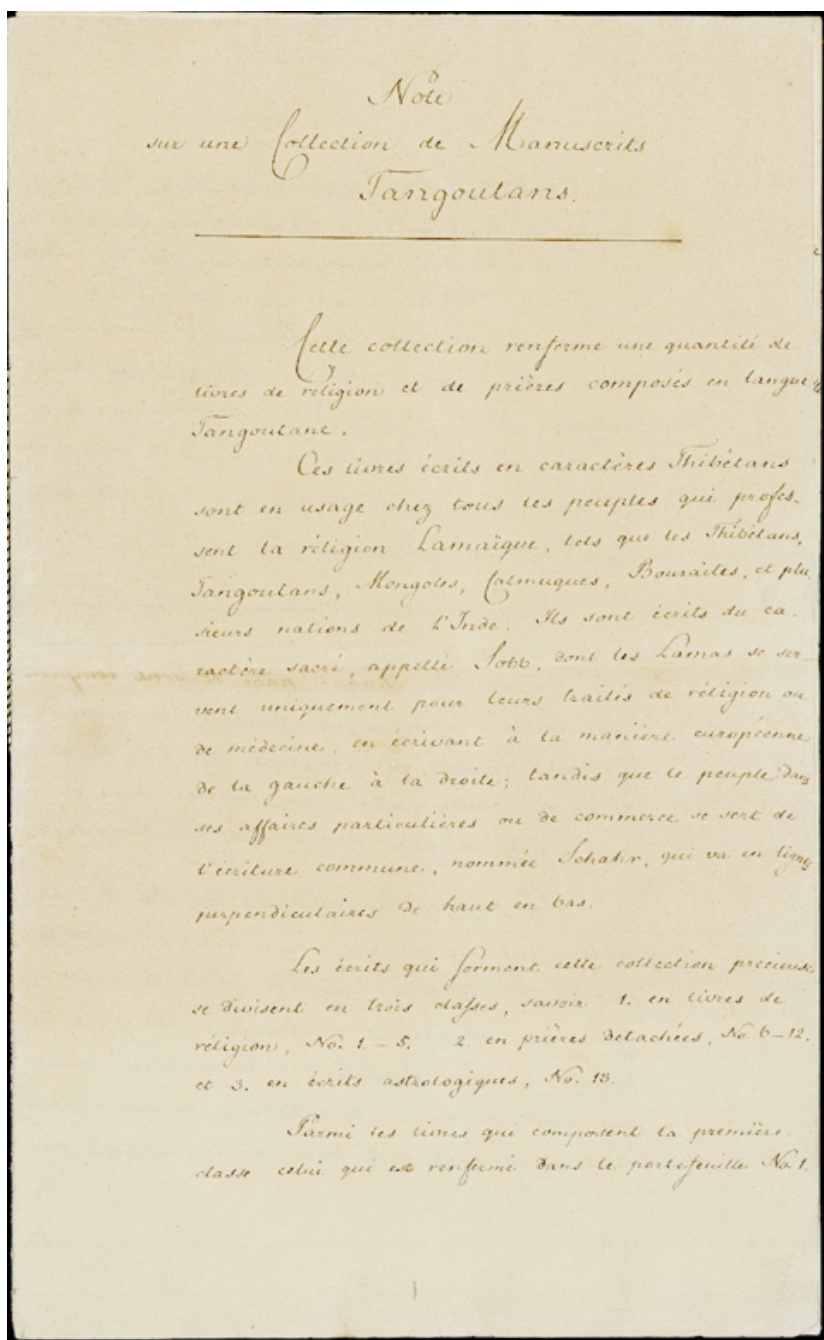 Note
sur une Collection de Manuscrits
Tangoutans.
Cette collection renferme une quantité de
livres de réligion et de prières composés en langue
Tangoutane.
Ces livres écrits en caractères Thibétans
sont en usage chez tous les peuples qui profes-
sent la réligion Lamaïque, tels que les Thibétans,
Tangoutans, Mongoles, Calmuques, Bouraïtes, et plu
sieurs nations de l'Inde. Ils sont écrits du ca-
ractère sacré, appellé, dont les Lamas se ser-
vent uniquement pour leurs traités de réligion ou
de médecine, en écrivant à la manière européenne
de la gauche à la droite; tandis que le peuple dans
ses affaires particulières ou de commerce se sert de
l'écriture commune, nommée Schahr, qui va en lignes
perpendiculaires de haut en bas.
Les écrits qui forment cette collection précieuse
se divisent en trois classes, savoir 1. en livres de
réligion, No. 1 - 5. 2. en prières detachées, No. 6-12.
et 3. en écrits astrologiques, No. 13.
Parmi les livres qui composent la première
classe celui qui est renfermé dans le portefeuille No. 1.